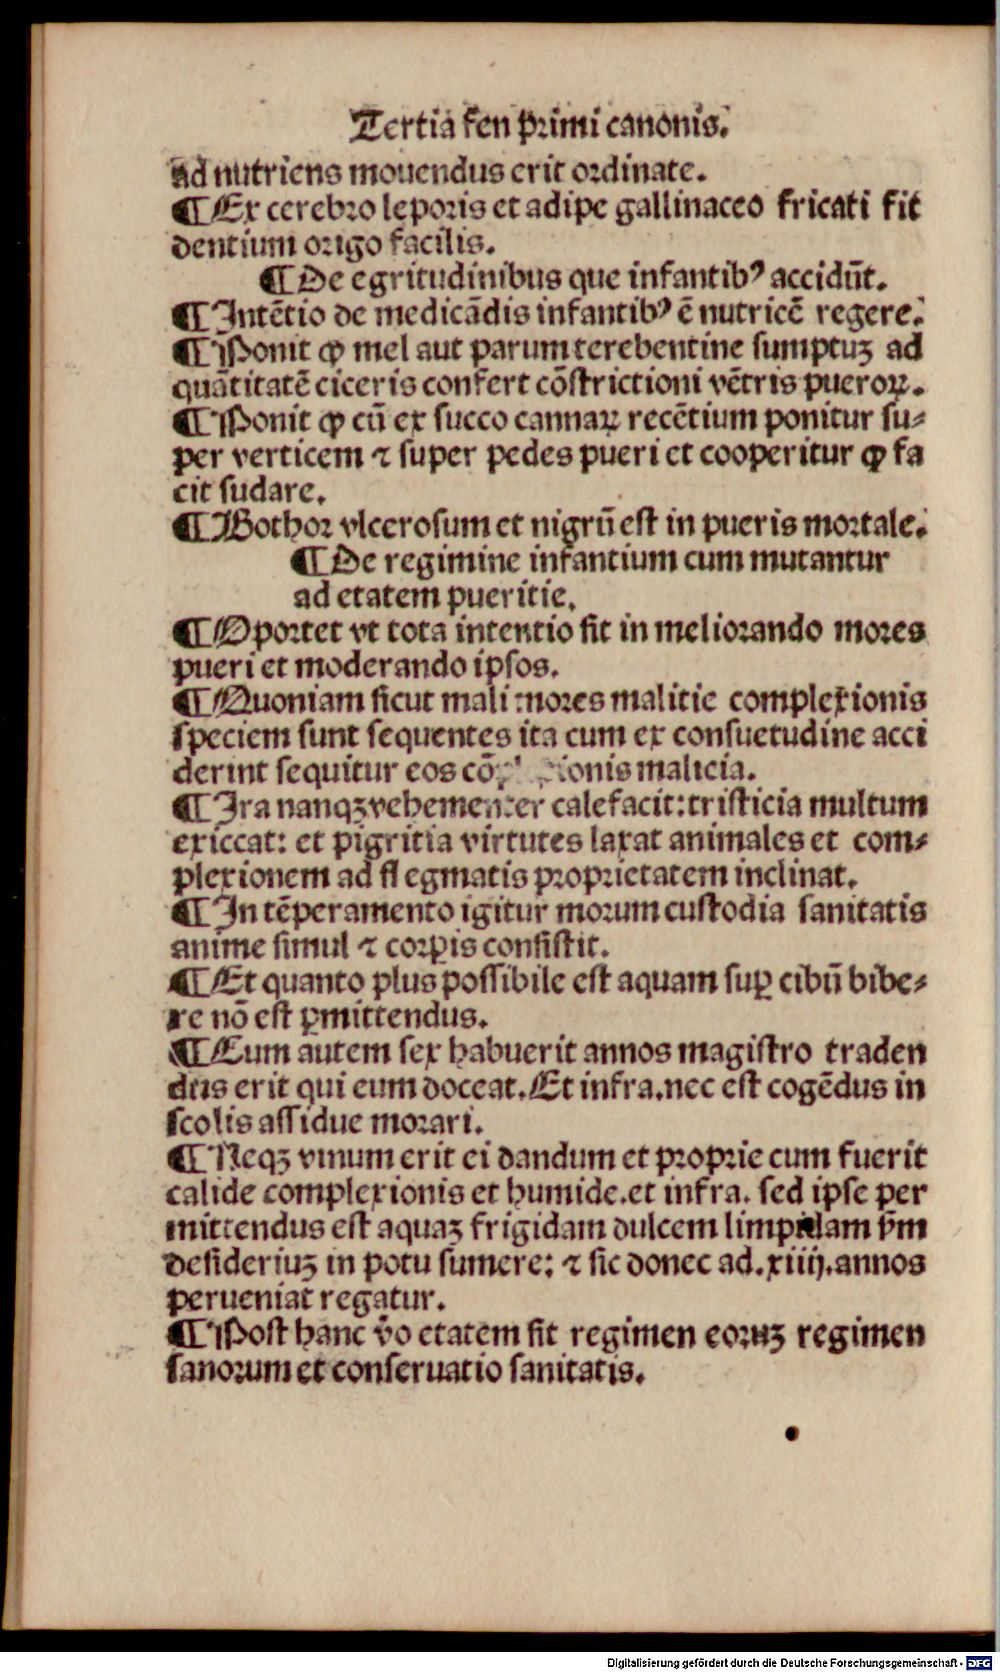 Tertia fen primi canonis.
ad nutriens mouendus erit ordinate.
¶ Ex cerebro leporis et adipe gallinaceo fricati fit
dentium origo facilis.
¶ De egritudinibus que infantibꝰ accidūt.
¶ Intētio de medicādis infantibꝰ ē nutricē regere.
¶ Ponit ꝙ mel aut parum terebentine sumptuꝫ ad
quātitatē ciceris confert cōstrictioni vētris pueroꝝ.
¶ Ponit ꝙ cū ex succo cannaꝝ recētium ponitur su⸗
per verticem ⁊ super pedes pueri et cooperitur ꝙ fa
cit sudare.
¶ Bothor vlcerosum et nigrū est in pueris mortale.
¶ De regimine infantium cum mutantur
ad etatem pueritie.
¶ Oportet vt tota intentio sit in meliorando mores
pueri et moderando ipsos.
¶ Quoniam sicut mali mores malitie complexionis
speciem sunt sequentes ita cum ex consuetudine acci
derint sequitur eos malicia.
¶ Ira nanqꝫ vehementer calefacit: tristicia multum
exiccat: et pigritia virtutes laxat animales et com⸗
plexionem ad flegmatis proprietatem inclinat.
¶ In tēperamento igitur morum custodia sanitatis
anime simul ⁊ corꝑis consistit.
¶ Et quanto plus possibile est aquam suꝑ cibū bibe⸗
re nō est ꝑmittendus.
¶ Cum autem sex habuerit annos magistro traden
dus erit qui eum doceat. Et infra. nec est cogēdus in
scolis assidue morari.
¶ Neqꝫ vinum erit ei dandum et proprie cum fuerit
calide complexionis et humide. et infra. sed ipse per
mittendus est aquaꝫ frigidam dulcem limpidam ẜm
desideriuꝫ in potu sumere: ⁊ sic donec ad. xiiij. annos
perueniat regatur.
¶ Post hanc v̄o etatem sit regimen eoruꝫ regimen
sanorum et conseruatio sanitatis.
Digitalisierung gefördert durch die Deutsche Forschungsgemeinschaft - DFG